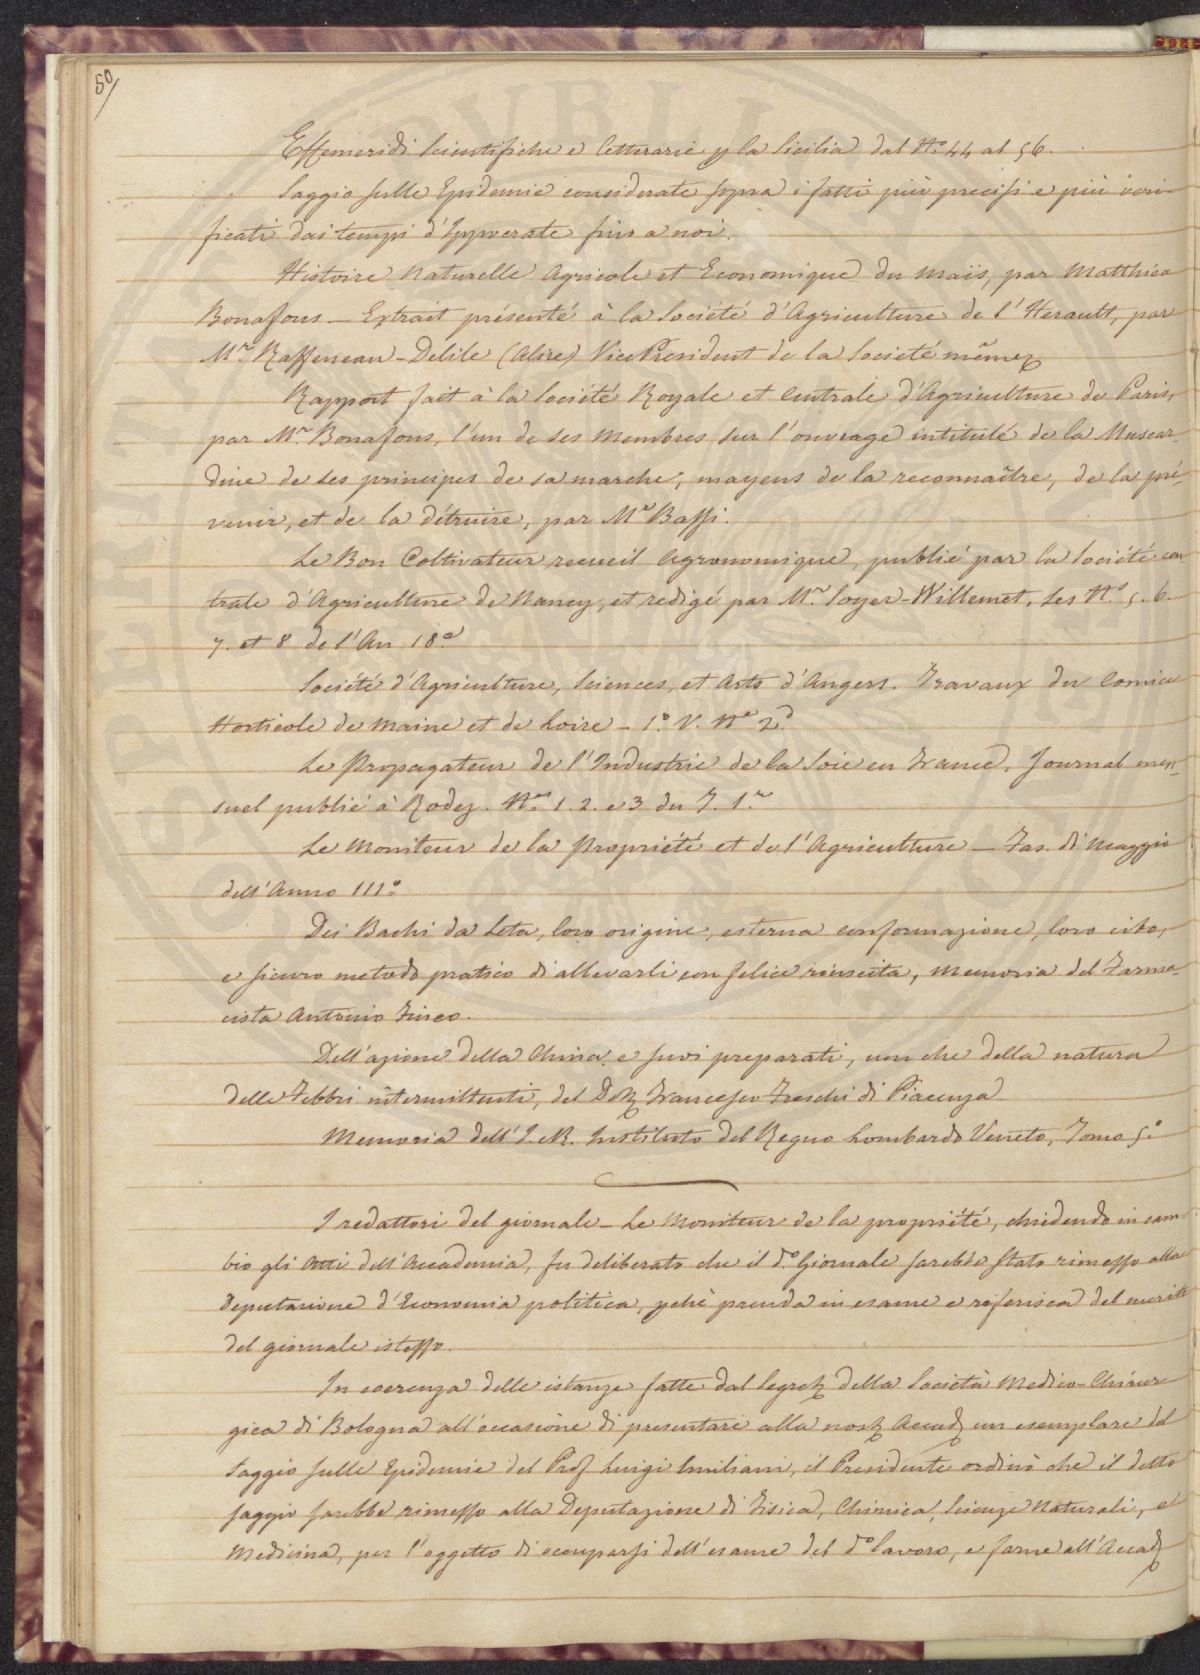 50/
Effemeridi Scientifiche e letterarie p la Sicilia dal N.° 44 al 56.
Saggio sulle Epidemie considerate sopra i fatti più precisi e più veri-
ficati dai tempi d'Ippocrate fino a noi.
Histoire Naturelle Agricole et Economique du Maïs, par Matthieu
Bonafous — Extrait présenté à la Société d'Agriculture de l'Herault, par
M.r Raffeneau-Delile (Alire) Vice President de la Societé même
Rapport fait à la Société Royale et Centrale d'Agriculture de Paris,
par M.r Bonafous, l'un de ses Membres sur l'ouvrage intitulé de la Muscar-
dine de ses principes de sa marche, moyens de la reconnaître, de la pré-
venir, et de la détruire, par M.r Bassi.
Le Bon Coltivateur recueil Agronomique, publié par la Société cen
trale d'Agriculture de Nancy, et redigé par M.r Soyer-Willemet. Les N.s 5. 6.
7. et 8 de l'An 18.°
Société d'Agriculture, Sciences, et Arts d'Angers. Travaux du Comice
Horticole de Maine et de Loire — 1.° V. N.° 2.d
Le Propagateur de l'Industrie de la Soie en France. Journal men-
suel publié à Rodez. N.os 1. 2. e 3 du T. 1.er
Le Moniteur de la Propriété et de l'Agriculture — Fas. di Maggio
dell'Anno III.°
Dei Bachi da Seta, loro origine, esterna conformazione, loro cibo,
e sicuro metodo pratico di allevarli con felice riuscita, Memoria del Farma-
cista Antonio
Dell'azione della China e suoi preparati, non che della natura
delle Febbri intermittenti, del Dott Francesco Freschi di Piacenza
Memoria dell'I. e R. Instituto del Regno Lombardo Veneto, Tomo 5.°
I redattori del giornale — Le Moniteur de la propriété, chiedendo in cam-
bio gli Atti dell'Accademia, fu deliberato che il d.° Giornale sarebbe stato rimesso alla
Deputazione d'Economia politica, pchè prenda in esame e riferisca del merito
del giornale istesso.
In coerenza delle istanze fatte dal Segret della Società Medico-Chirur
gica di Bologna all'occasione di presentare alla nost Accad un esemplare del
Saggio sulle Epidemie del Prof Luigi Emiliani, il Presidente ordinò che il detto
saggio sarebbe rimesso alla Deputazione di Fisica, Chimica, Scienze Naturali, e
Medicina, per l'oggetto di occuparsi dell'esame del d.° lavoro, e farne all'Accad